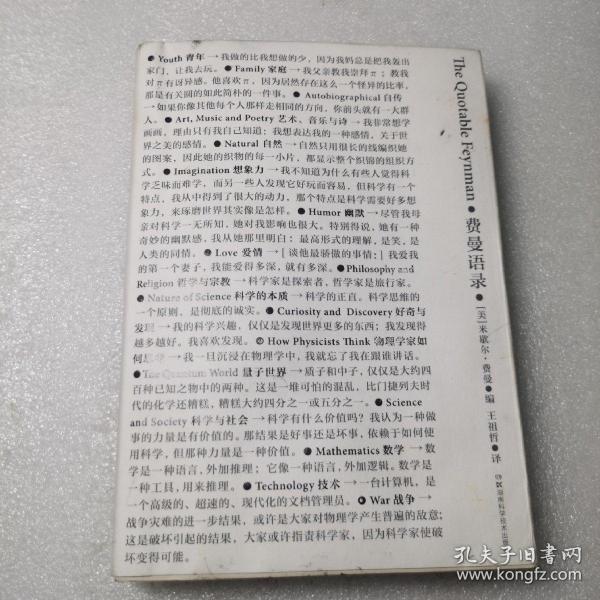 ● Youth 青年→我做的比我想做的少，因为我妈总是把我轰出
家门，让我去玩。● Family 家庭→我父亲教我崇拜π；教我
对π有讶异感。他喜欢π，因为居然存在这么一个怪异的比率，
那是有关圆的如此简朴的一件事。● Autobiographical 自传
→如果你像其他每个人那样走相同的方向，你前头就有一大群
人。● Art, Music and Poetry 艺术、音乐与诗→我非常想学
画画，理由只有我自己知道：我想表达我的一种感情，关于世
界之美的感情。● Natural 自然→自然只用很长的线编织她
的图案，因此她的织物的每一小片，都显示整个织锦的组织方
式。● Imagination 想象力→我不知道为什么有些人觉得科
学乏味而难学，而另一些人发现它好玩而容易，但科学有一个
特点，我从中得到了很大的动力，那个特点是科学需要好多想
象力，来琢磨世界其实像是怎样。● Humor 幽默→尽管我母
亲对科学一无所知，她对我影响也很大。特别得说，她有一种
奇妙的幽默感，我从她那里明白：最高形式的理解，是笑，是
人类的同情。● Love 爱情→[谈他最骄傲的事情:]我爱我
的第一个妻子，我能爱得多深，就有多深。●Philosophy and
Religion 哲学与宗教→科学家是探索者，哲学家是旅行家。
● Nature of Science 科学的本质→科学的正直，科学思维的
一个原则，是彻底的诚实。● Curiosity and Discovery 好奇与
发现→我的科学兴趣，仅仅是发现世界更多的东西；我发现得
越多越好。我喜欢发现。● How Physicists Think 物理学家如
何思考→我一旦沉浸在物理学中，我就忘了我在跟谁讲话。
● The Quantum World 量子世界→质子和中子，仅仅是大约四
百种已知之物中的两种。这是一堆可怕的混乱，比门捷列夫时
代的化学还糟糕，糟糕大约四分之一或五分之一。● Science
and Society 科学与社会→科学有什么价值吗？我认为一种做
事的力量是有价值的。那结果是好事还是坏事，依赖于如何使
用科学，但那种力量是一种价值。● Mathematics 数学→数
学是一种语言，外加推理；它像一种语言，外加逻辑。数学是
一种工具，用来推理。● Technology 技术→一台计算机，是
一个高级的、超速的、现代化的文档管理员。● War 战争→
战争灾难的进一步结果，或许是大家对物理学产生普遍的敌意；
这是破坏引起的结果，大家或许指责科学家，因为科学家使破
坏变得可能。
The Quotable Feynman ● 费曼语录 ● [美]米歇尔·费曼 ● 编 王祖哲 ● 译
湖南科学技术出版
孔夫子旧书网
www.kongfz.com